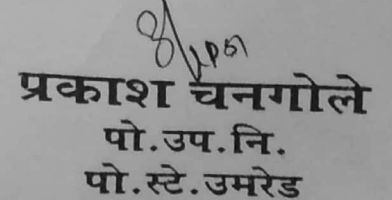 प्रकाश चनगोले
पो.उप.नि.
पो.स्टे.उमरेड